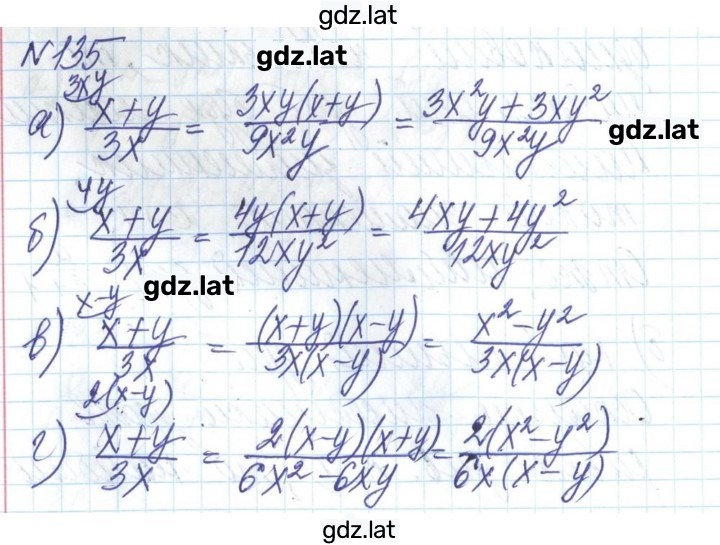 gdz.lat
N135
gdz.lat
3xy
а) (x+y)/(3x) = (3xy(x+y))/(9x²y) = (3x²y+3xy²)/(9x²y)
gdz.lat
4y
б) (x+y)/(3x) = (4y(x+y))/(12xy²) = (4xy+4y²)/(12xy²)
gdz.lat
x-y
в) (x+y)/(3x) = ((x+y)(x-y))/(3x(x-y)) = (x²-y²)/(3x(x-y))
2(x-y)
г) (x+y)/(3x) = (2(x-y)(x+y))/(6x²-6xy) = (2(x²-y²))/(6x(x-y))
gdz.lat